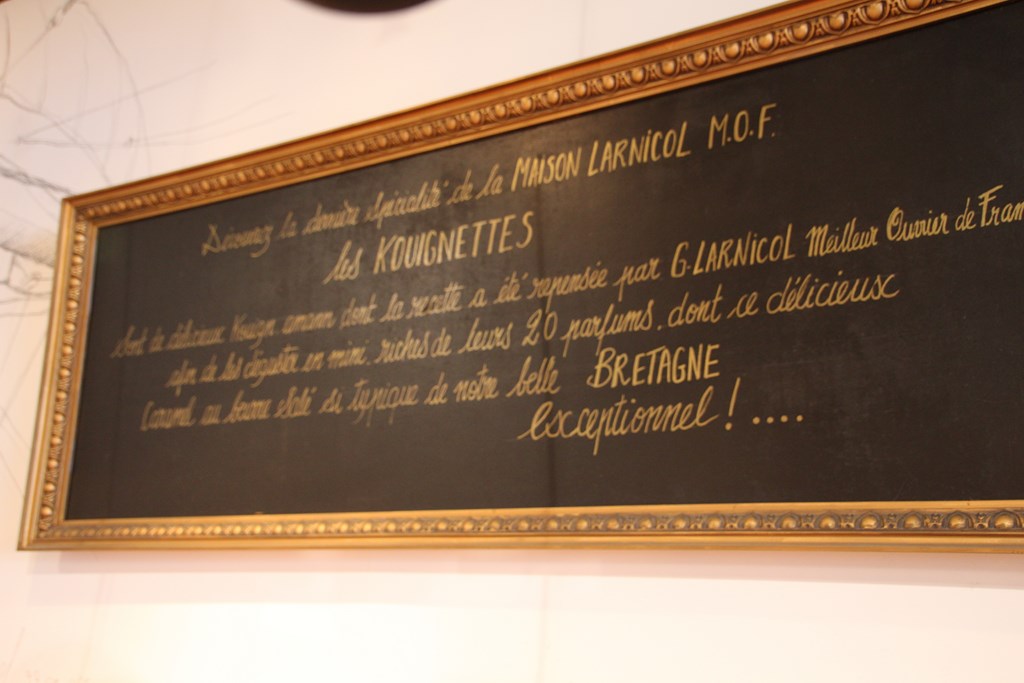 Découvrez la dernière spécialité de la MAISON LARNICOL M.O.F.
les KOUIGNETTES
Sont de délicieux Kouign amann dont la recette a été repensée par G.LARNICOL Meilleur Ouvrier de Fran
afin de les déguster en mini, riches de leurs 20 parfums. dont ce délicieux
Caramel au beurre salé si typique de notre belle BRETAGNE
exceptionnel ! ....